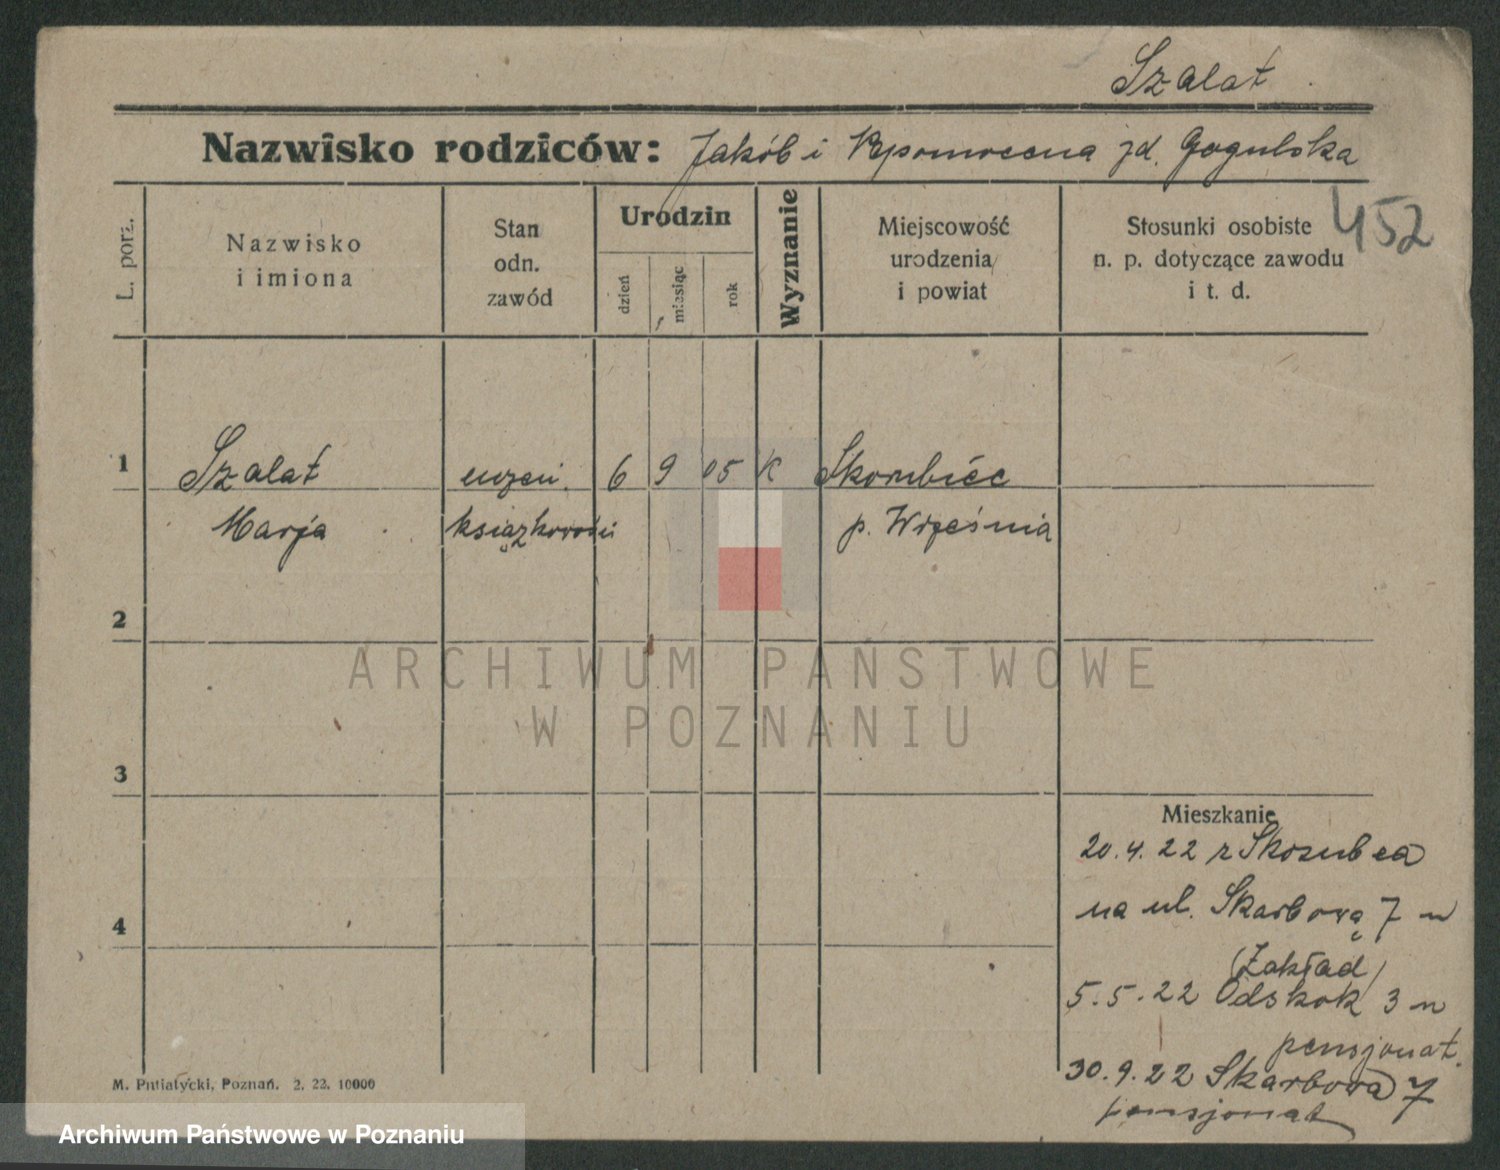 Szalat
Nazwisko rodziców: Jakób i Nepomocena zd. Gogulska
452
L. porz.
Nazwisko
i imiona
Stan
odn.
zawód
Urodzin
dzień
miesiąc
rok
Wyznanie
Miejscowość
urodzenia
i powiat
Stosunki osobiste
n. p. dotyczące zawodu
i t. d.
1
Szalat uczen. 6 9 05 K
Marja książkowości p. Września
2
ARCHIWUM PAŃSTWOWE
W POZNANIU
3
Mieszkanie
20.4.22 z
na ul. Skarbową 7
4
(Zakład)
5.5.22 Odskok 3
pensjonat.
30.9.22 Skarbowa 7
pensjonat
M. Putiatycki, Poznań. 2. 22. 10000
Archiwum Państwowe w Poznaniu